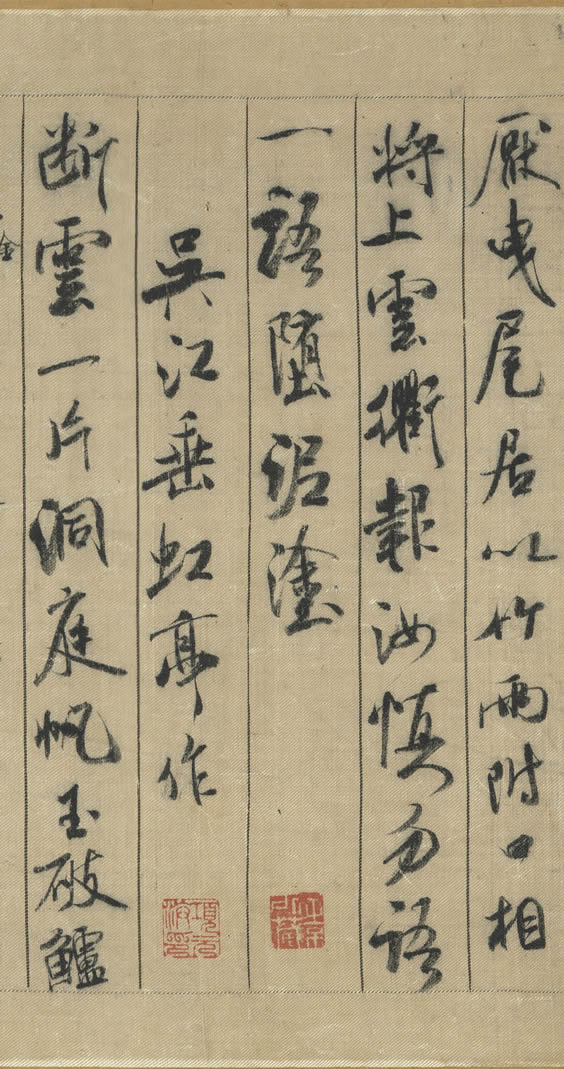 厭曳尾居以竹兩附口相
將上雲衢報汝慎勿語
一語墮泥塗
吳江垂虹亭作
断雲一片洞庭帆玉破鱸